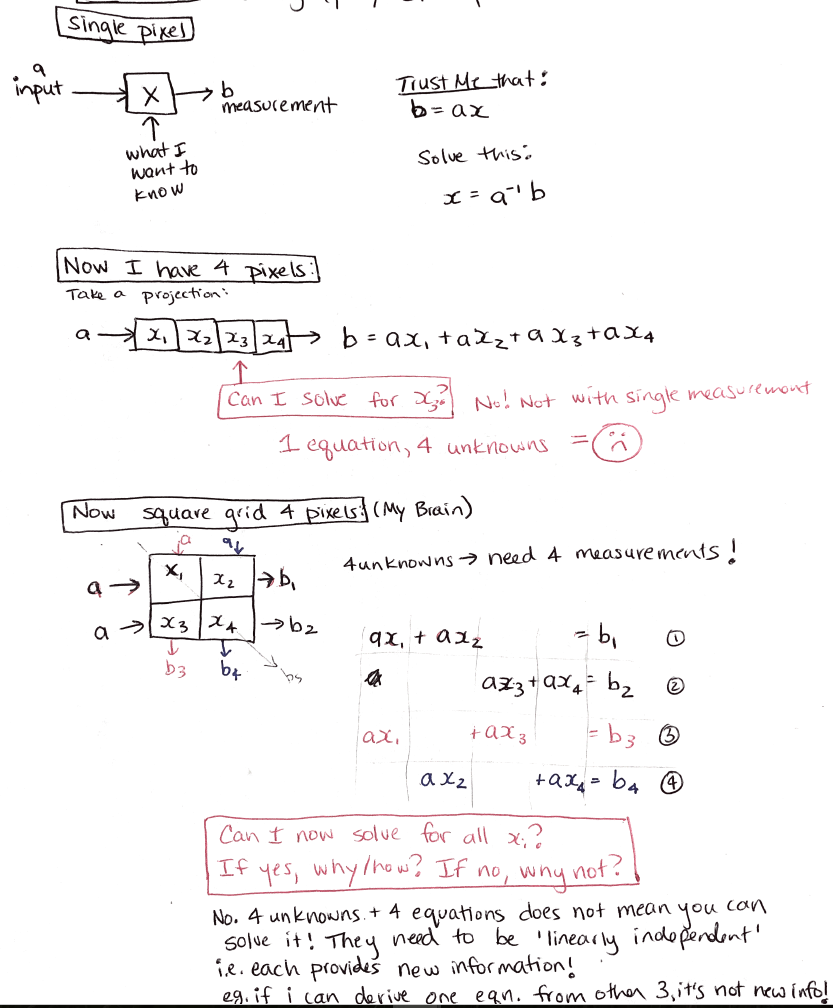 Single pixel
a
input
X
b
measurement
what I
want to
know
Trust Me that:
b = ax
Solve this:
x = a⁻¹ b
Now I have 4 pixels:
Take a projection:
a → x₁ x₂ x₃ x₄ → b = ax₁ + ax₂ + ax₃ + ax₄
Can I solve for x₃? No! Not with single measurement
1 equation, 4 unknowns = ☹
Now square grid 4 pixels: (My Brain)
a a
a → x₁ x₂ → b₁
a → x₃ x₄ → b₂
b₃ b₄ b₅
4 unknowns → need 4 measurements!
ax₁ + ax₂ = b₁ ①
ax₃ + ax₄ = b₂ ②
ax₁ + ax₃ = b₃ ③
ax₂ + ax₄ = b₄ ④
Can I now solve for all xᵢ?
If yes, why/how? If no, why not?
No. 4 unknowns + 4 equations does not mean you can
solve it! They need to be 'linearly independent'
i.e. each provides new information!
eg. if i can derive one eqn. from other 3, it's not new info!